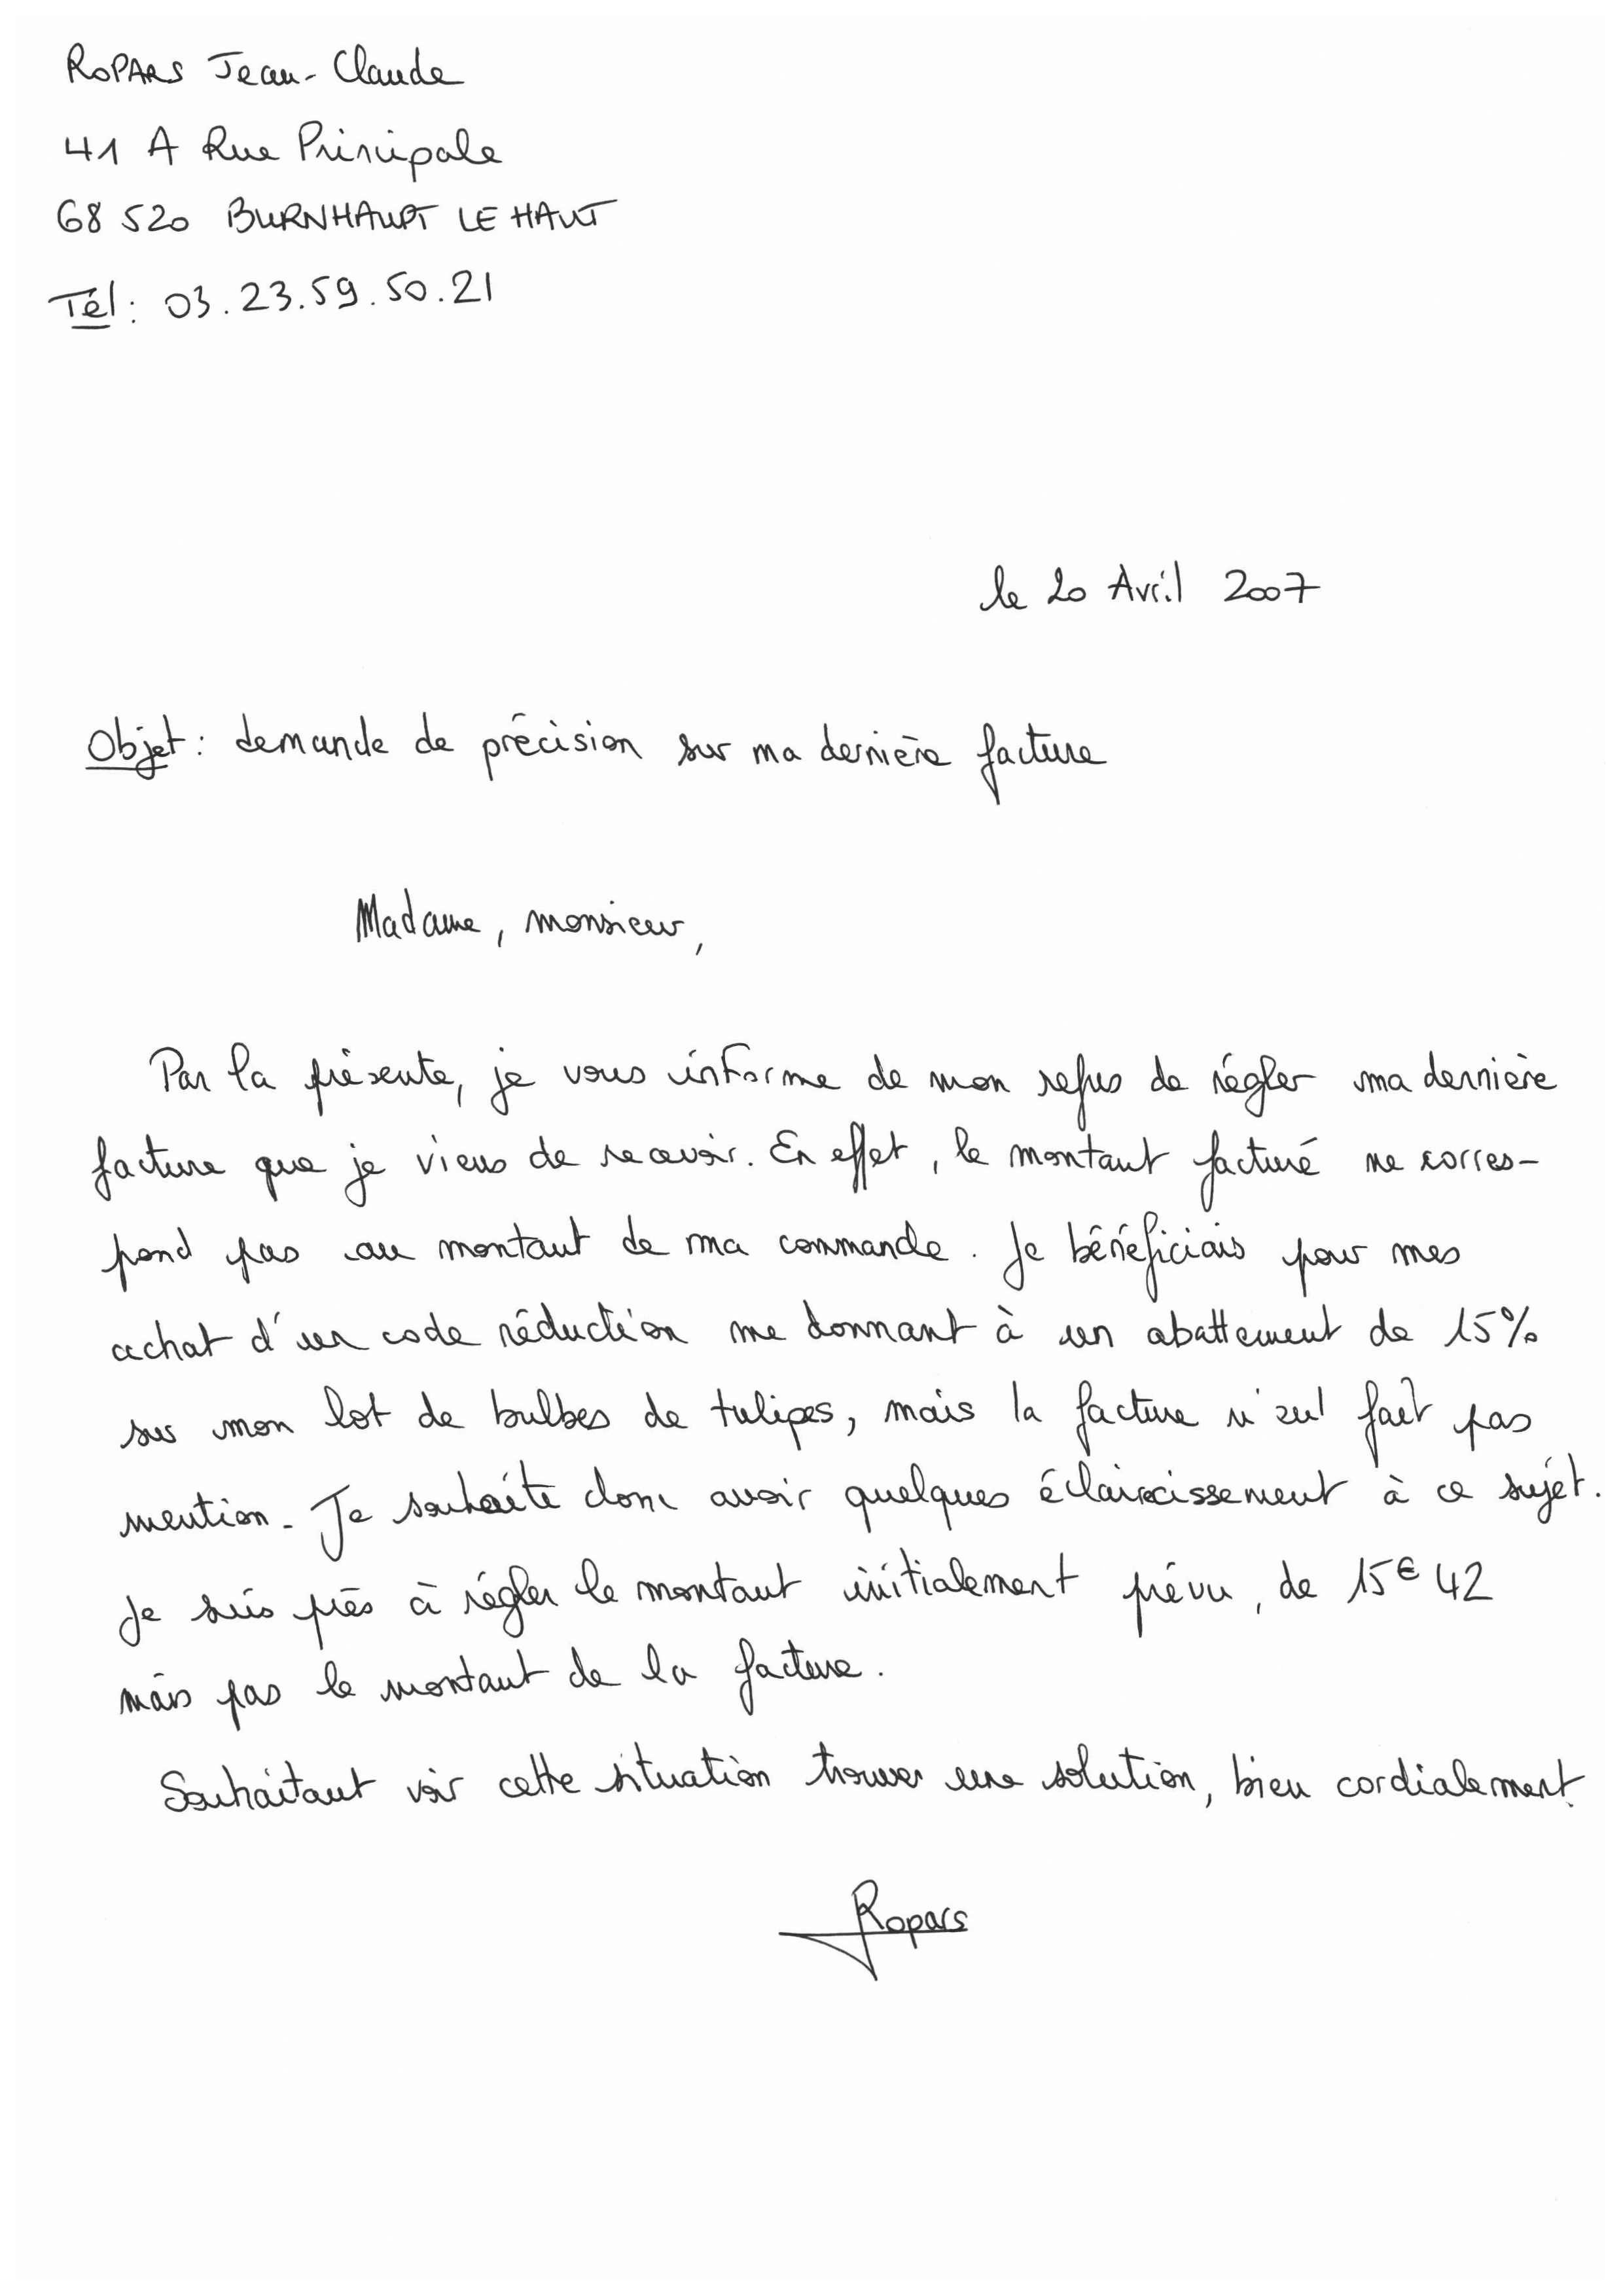 ROPARS Jean-Claude
41 A Rue Principale
68 520 BURNHAUPT LE HAUT
Tél : 03.23.59.50.21
le 20 Avril 2007
Objet : demande de précision sur ma dernière facture
Madame, monsieur,
Par la présente, je vous informe de mon refus de régler ma dernière
facture que je viens de recevoir. En effet, le montant facturé ne corres-
pond pas au montant de ma commande. Je bénéficiais pour mes
achat d'un code réduction me donnant à un abattement de 15%
sur mon lot de bulbes de tulipes, mais la facture n' fait pas
mention. Je souhaite donc avoir quelques éclaircissement à ce sujet.
Je suis près à régler le montant initialement prévu, de 15€42
mais pas le montant de la facture.
Souhaitant voir cette situation trouver une solution, bien cordialement.
Ropars